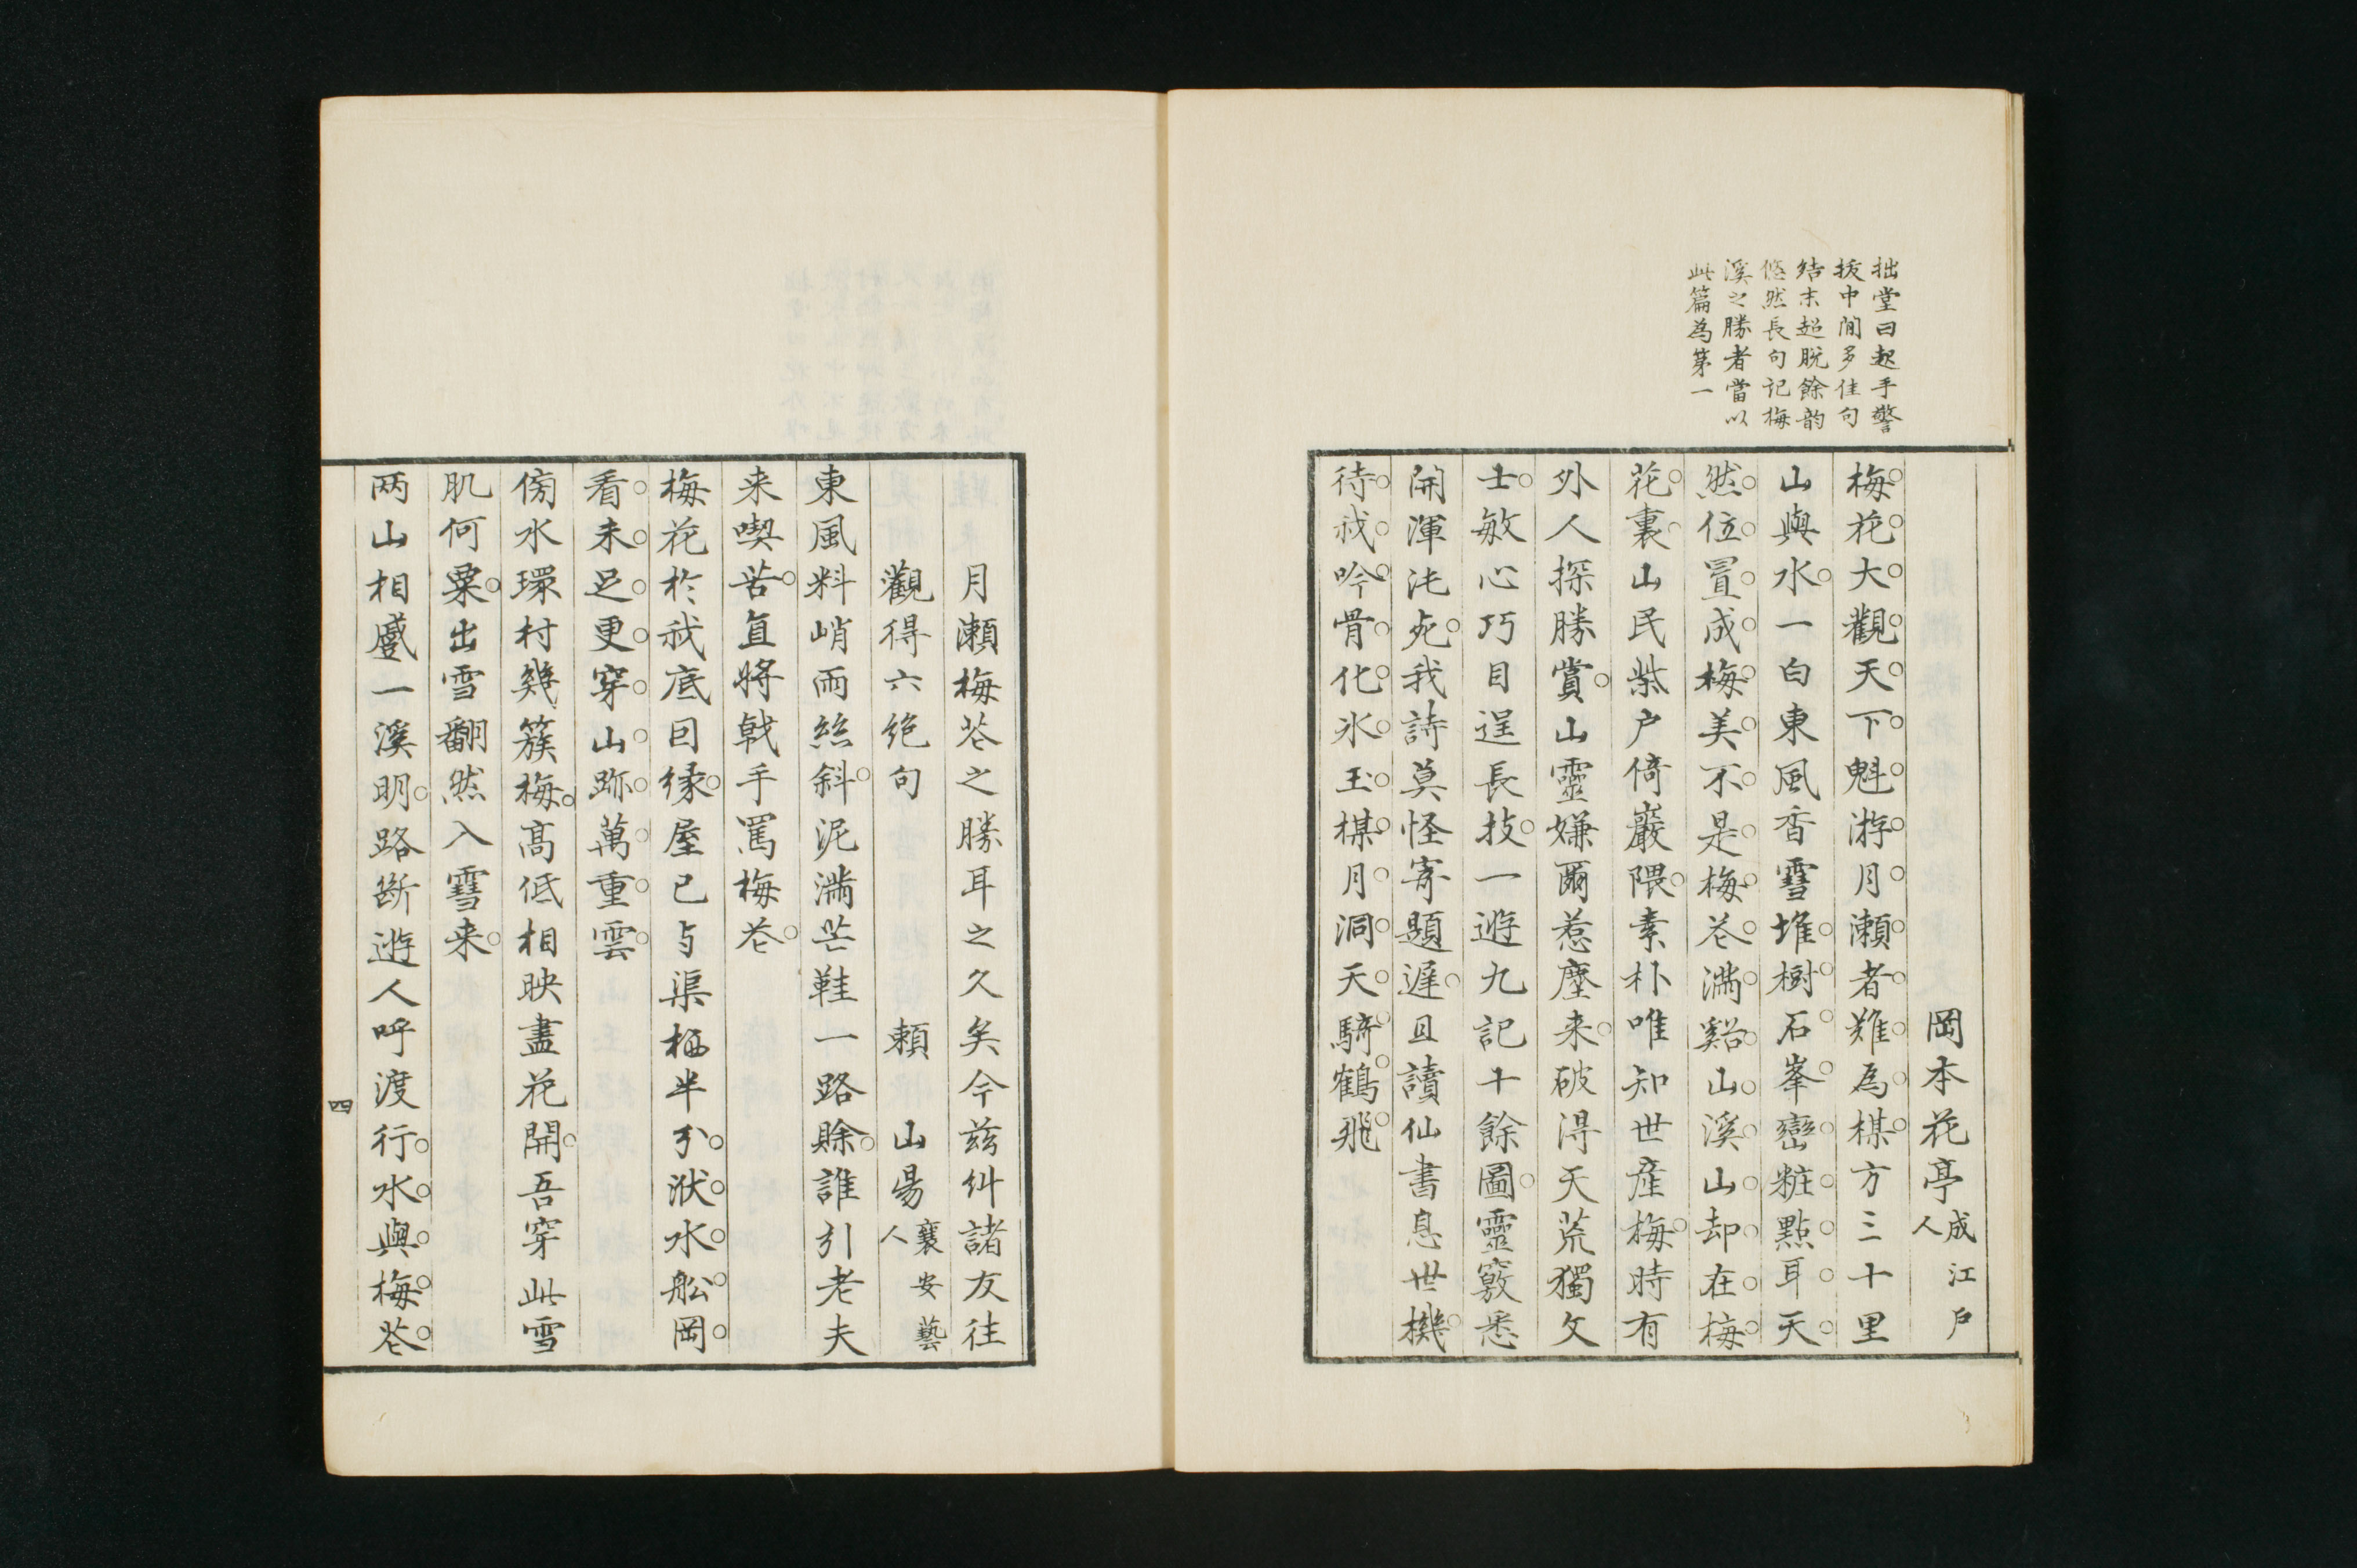 拙堂曰起手警
拔中間多佳句
結末超脱餘韵
悠然長句記梅
溪之勝者當以
此篇為第一
岡本花亭成人江戸
梅花大觀天下魁游月瀬者難為楳方三十里
山與水一白東風香雪堆樹石峯巒粧點耳天
然位置成梅美不是梅花滿谿山溪山却在梅
花裏山民柴戸倚巖隈素朴唯知世産梅時有
外人探勝賞山靈嫌爾惹塵来破得天荒獨文
士敏心巧目逞長技一遊九記十餘圖靈竅悉
開渾沌死我詩莫怪寄題遲且讀仙書息世機
待我吟骨化氷玉楳月洞天騎鶴飛
月瀬梅花之勝耳之久矣今茲糾諸友往
觀得六絶句 頼 山陽襄人安藝
東風料峭雨絲斜泥滿芒鞋一路賖誰引老夫
来喫苦直將戟手罵梅花
梅花於我底因緣屋已与渠栖半分洑水舩岡
看未足更穿山跡萬重雲
傍水環村幾簇梅高低相映盡花開吾穿此雪
肌何粟出雪翻然入雪来
两山相蹙一溪明路斷遊人呼渡行水與梅花
四